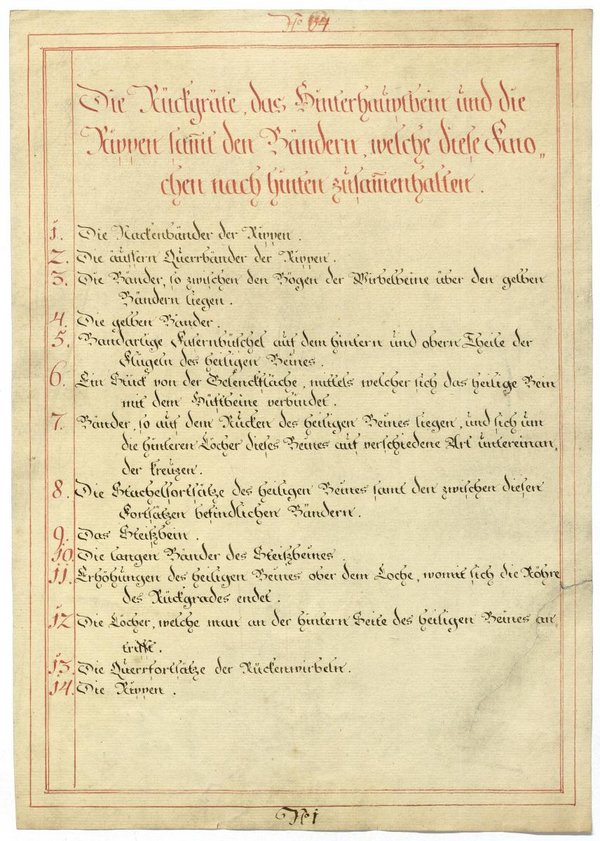 No 34
Die Rückgräte, das Hinterhauptbein und die
Rippen sam̄t den Bändern, welche diese Kno„
chen nach hinten zusam̄enhalten.
1. Die Nackenbänder der Rippen.
2. Die äussern Querrbänder der Rippen.
3. Die Bänder, so zwischen den Bögen der Wirbelbeine über den gelben
Bändern liegen.
4. Die gelben Bänder.
5. Bandartige Fasernbüschel auf dem hintern und obern Theile der
Flügeln des heiligen Beines.
6. Ein Stück von der Gelenckfläche, mittels welcher sich das heilige Bein
mit dem Hüftbeine verbindet.
7. Bänder, so auf dem Rücken des heiligen Beines liegen, und sich um
die hinteren Löcher dieses Beines auf verschiedene Art untereinan,
der kreuzen.
8. Die Stachelfortsätze des heiligen Beines samt den zwischen diesen
Fortsätzen befindlichen Bändern.
9. Das Steißbein.
10. Die langen Bänder des Steißbeines.
11. Erhöhungen des heiligen Beines ober dem Loche, womit sich die Röhre
des Rückgrades endet.
12 Die Löcher, welche man an der hintern Seite des heiligen Beines an
trifft.
13. Die Querrfortsätze der Rückenwirbeln.
14. Die Rippen.
No 1